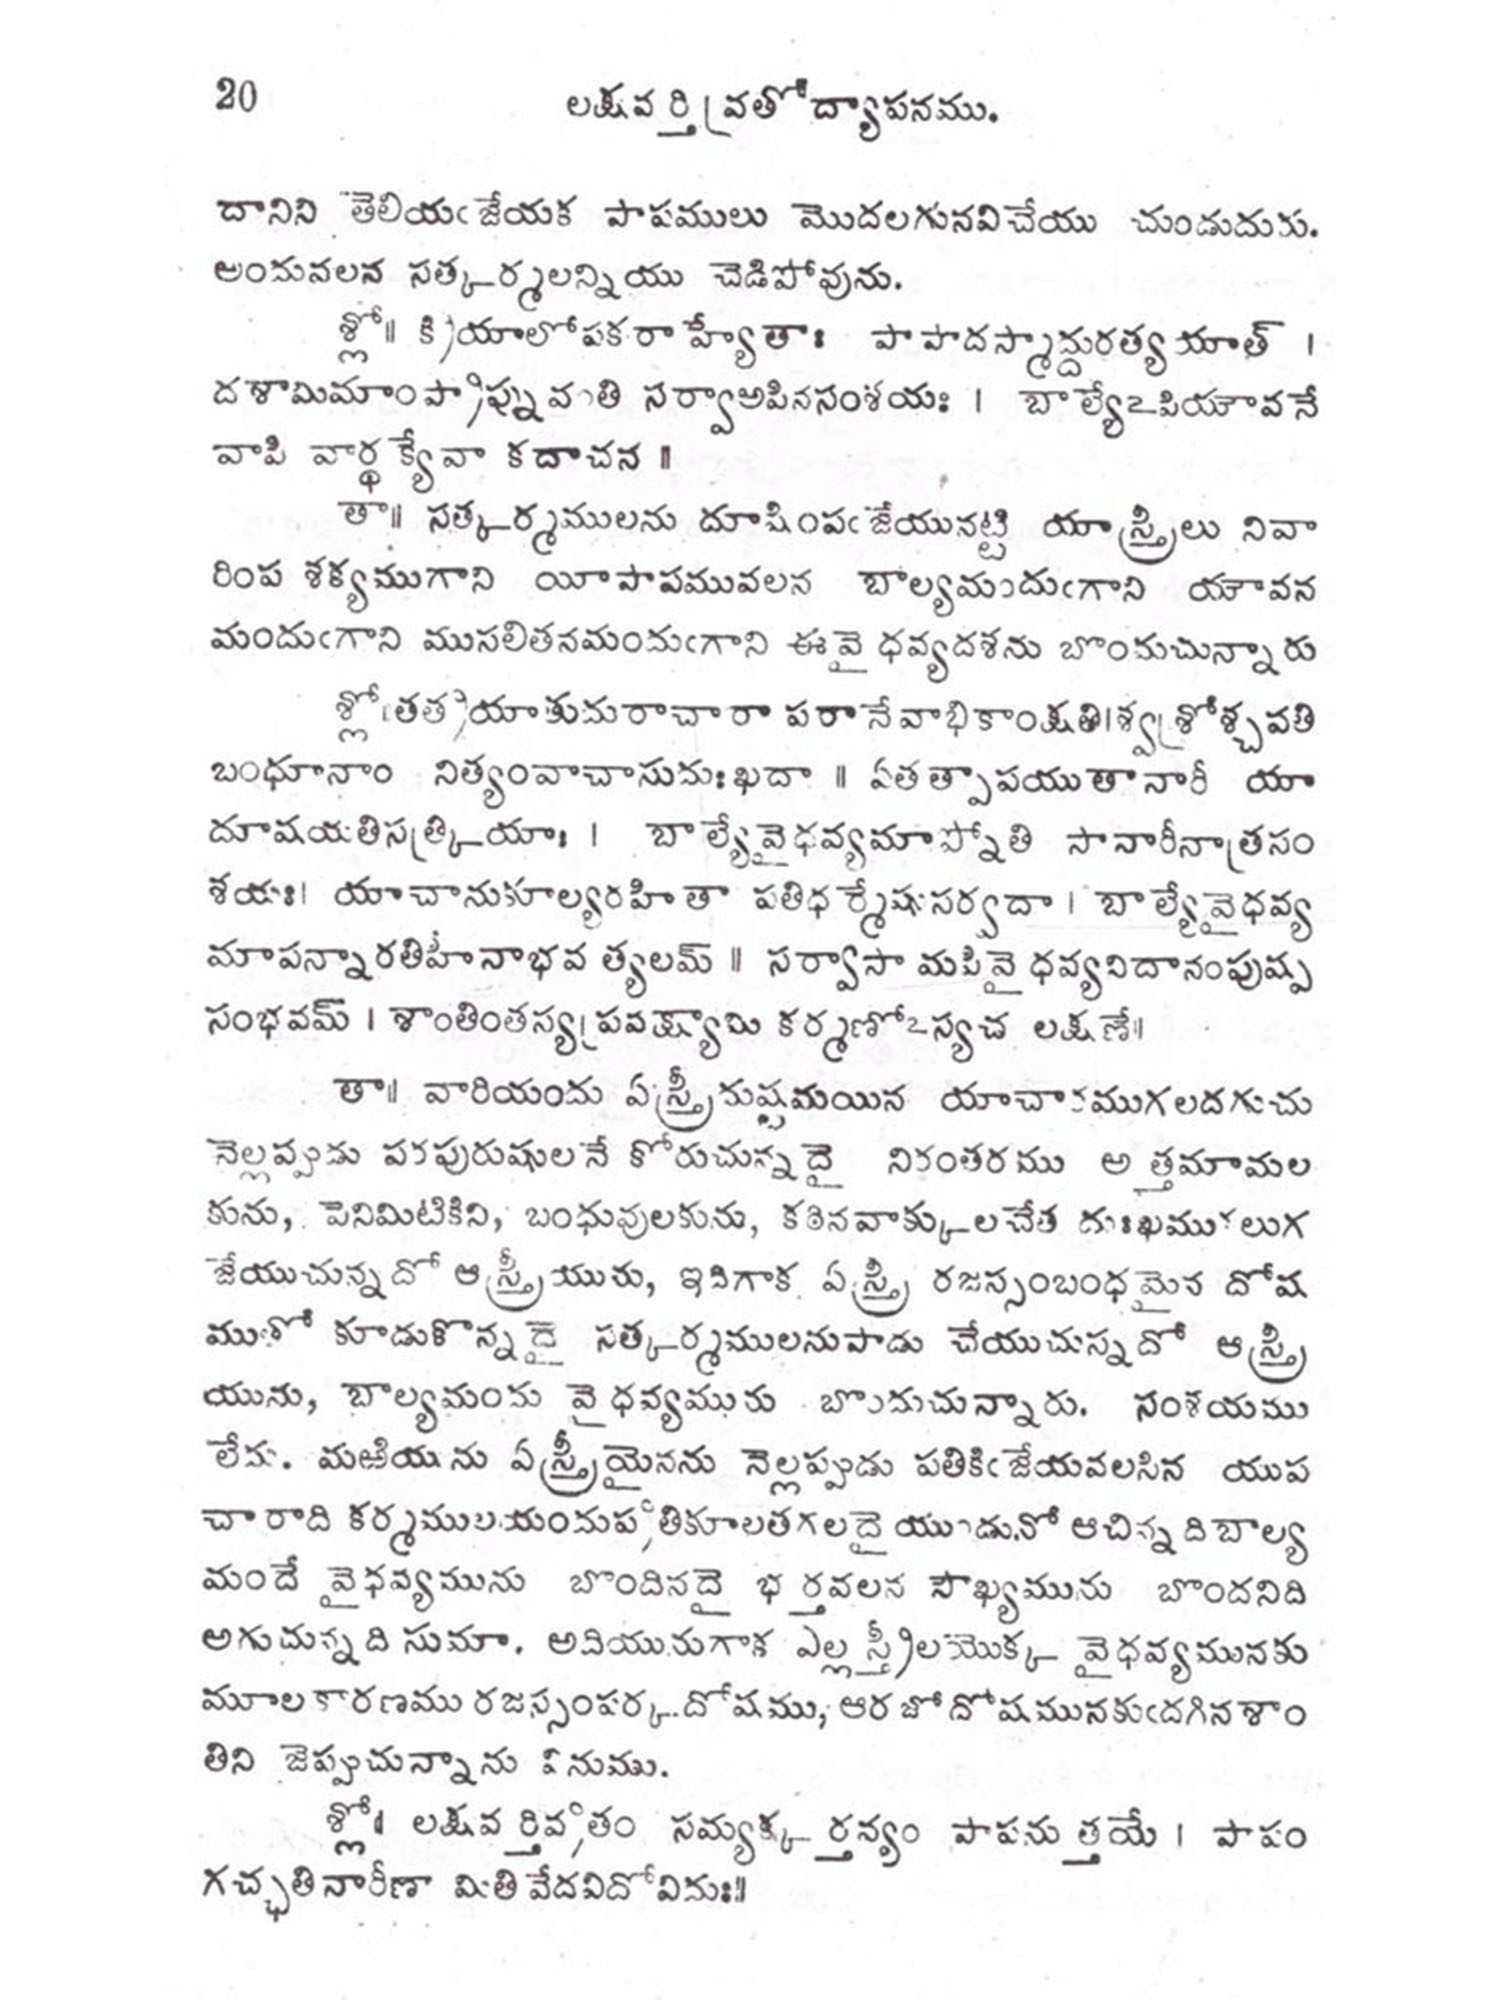 20
లక్షవర్తివ్రతోద్యాపనము.
దానిని తెలియఁజేయక పాపములు మొదలగునవిచేయు చుండుదురు.
అందువలన సత్కర్మలన్నియు చెడిపోవును.
శ్లో॥ క్రియాలోపకరాహ్యేతాః పాపాదస్మాద్దురత్యయాత్ ।
దశామిమాంప్రాప్నువంతి సర్వాఅపినసంశయః । బాల్యేఽపియౌవనే
వాపి వార్థక్యేవా కదాచన ॥
తా॥ సత్కర్మములను దూషింపఁజేయునట్టి యాస్త్రీలు నివా
రింప శక్యముగాని యీపాపమువలన బాల్యమందుఁగాని యౌవన
మందుఁగాని ముసలితనమందుఁగాని ఈవైధవ్యదశను బొందుచున్నారు
శ్లో।తత్రయాతుదురాచారా పరానేవాభికాంక్షతి।శ్వశ్రోశ్చపతి
బంధూనాం నిత్యంవాచాసుదుఃఖదా ॥ ఏతత్పాపయుతానారీ యా
దూషయతిసత్క్రియాః । బాల్యేవైధవ్యమాప్నోతి సానారీనాత్రసం
శయః। యాచానుకూల్యరహితా పతిధర్మేషుసర్వదా । బాల్యేవైధవ్య
మాపన్నారతిహీనాభవత్యలమ్ ॥ సర్వాసామపివైధవ్యనిదానంపుష్ప
సంభవమ్ । శాంతింతస్యప్రవక్ష్యామి కర్మణోఽస్యచ లక్షణే॥
తా॥ వారియందు ఏస్త్రీదుష్టమయిన యాచారముగలదగుచు
నెల్లప్పుడు పరపురుషులనే కోరుచున్నదై నిరంతరము అత్తమామల
కును, పెనిమిటికిని, బంధువులకును, కఠినవాక్కులచేత దుఃఖముగలుగ
జేయుచున్నదో ఆస్త్రీయును, ఇదిగాక ఏస్త్రీ రజస్సంబంధమైన దోష
ముతో కూడుకొన్నదై సత్కర్మములనుపాడు చేయుచున్నదో ఆస్త్రీ
యును, బాల్యమందు వైధవ్యమును బొందుచున్నారు. సంశయము
లేదు. మఱియును ఏస్త్రీయైనను నెల్లప్పుడు పతికిఁజేయవలసిన యుప
చారాది కర్మములయందుప్రతికూలతగలదై యుండునో ఆచిన్నదిబాల్య
మందే వైధవ్యమును బొందినదై భర్తవలన సౌఖ్యమును బొందనిది
అగుచున్నది సుమా. అదియునుగాక ఎల్ల స్త్రీలయొక్క వైధవ్యమునకు
మూలకారణము రజస్సంపర్క దోషము, ఆరజోదోషమునకుఁదగినశాం
తిని జెప్పుచున్నాను వినుము.
శ్లో। లక్షవర్తివ్రతం సమ్యక్కర్తవ్యం పాపనుత్తయే । పాపం
గచ్ఛతినారీణా మితివేదవిదోవిదుః॥